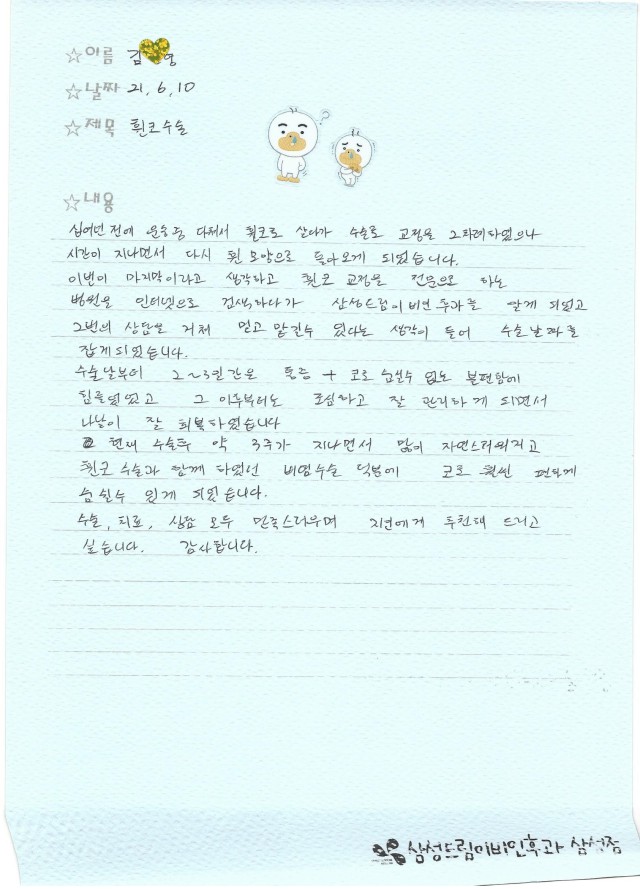 ☆이름 김 영
☆날짜 21. 6. 10
☆제목 휜코수술
?
☆내용
십여년 전에 운동중 다쳐서 휜코로 살다가 수술로 교정을 2차례하였으나
시간이 지나면서 다시 휜 모양으로 돌아오게 되었습니다.
이번이 마지막이라고 생각하고 휜코 교정을 전문으로 하는
병원을 인터넷으로 검색하다가 삼성드림이비인후과를 알게 되었고
2번의 상담을 거쳐 믿고 맡길수 있다는 생각이 들어 수술날짜를
잡게되었습니다.
수술날부터 2~3일간은 통증 + 코로 숨쉴수 없는 불편함에
힘들었었고 그 이후부터는 조심하고 잘 관리하게 되면서
나날이 잘 회복하였습니다
현재 수술후 약 3주가 지나면서 많이 자연스러워지고
휜코 수술과 함께 하였던 비염수술 덕분에 코로 훨씬 편하게
숨쉴수 있게 되었습니다.
수술, 치료, 상담 모두 만족스러우며 지인에게 추천해 드리고
싶습니다. 감사합니다.
삼성드림이비인후과 삼성점